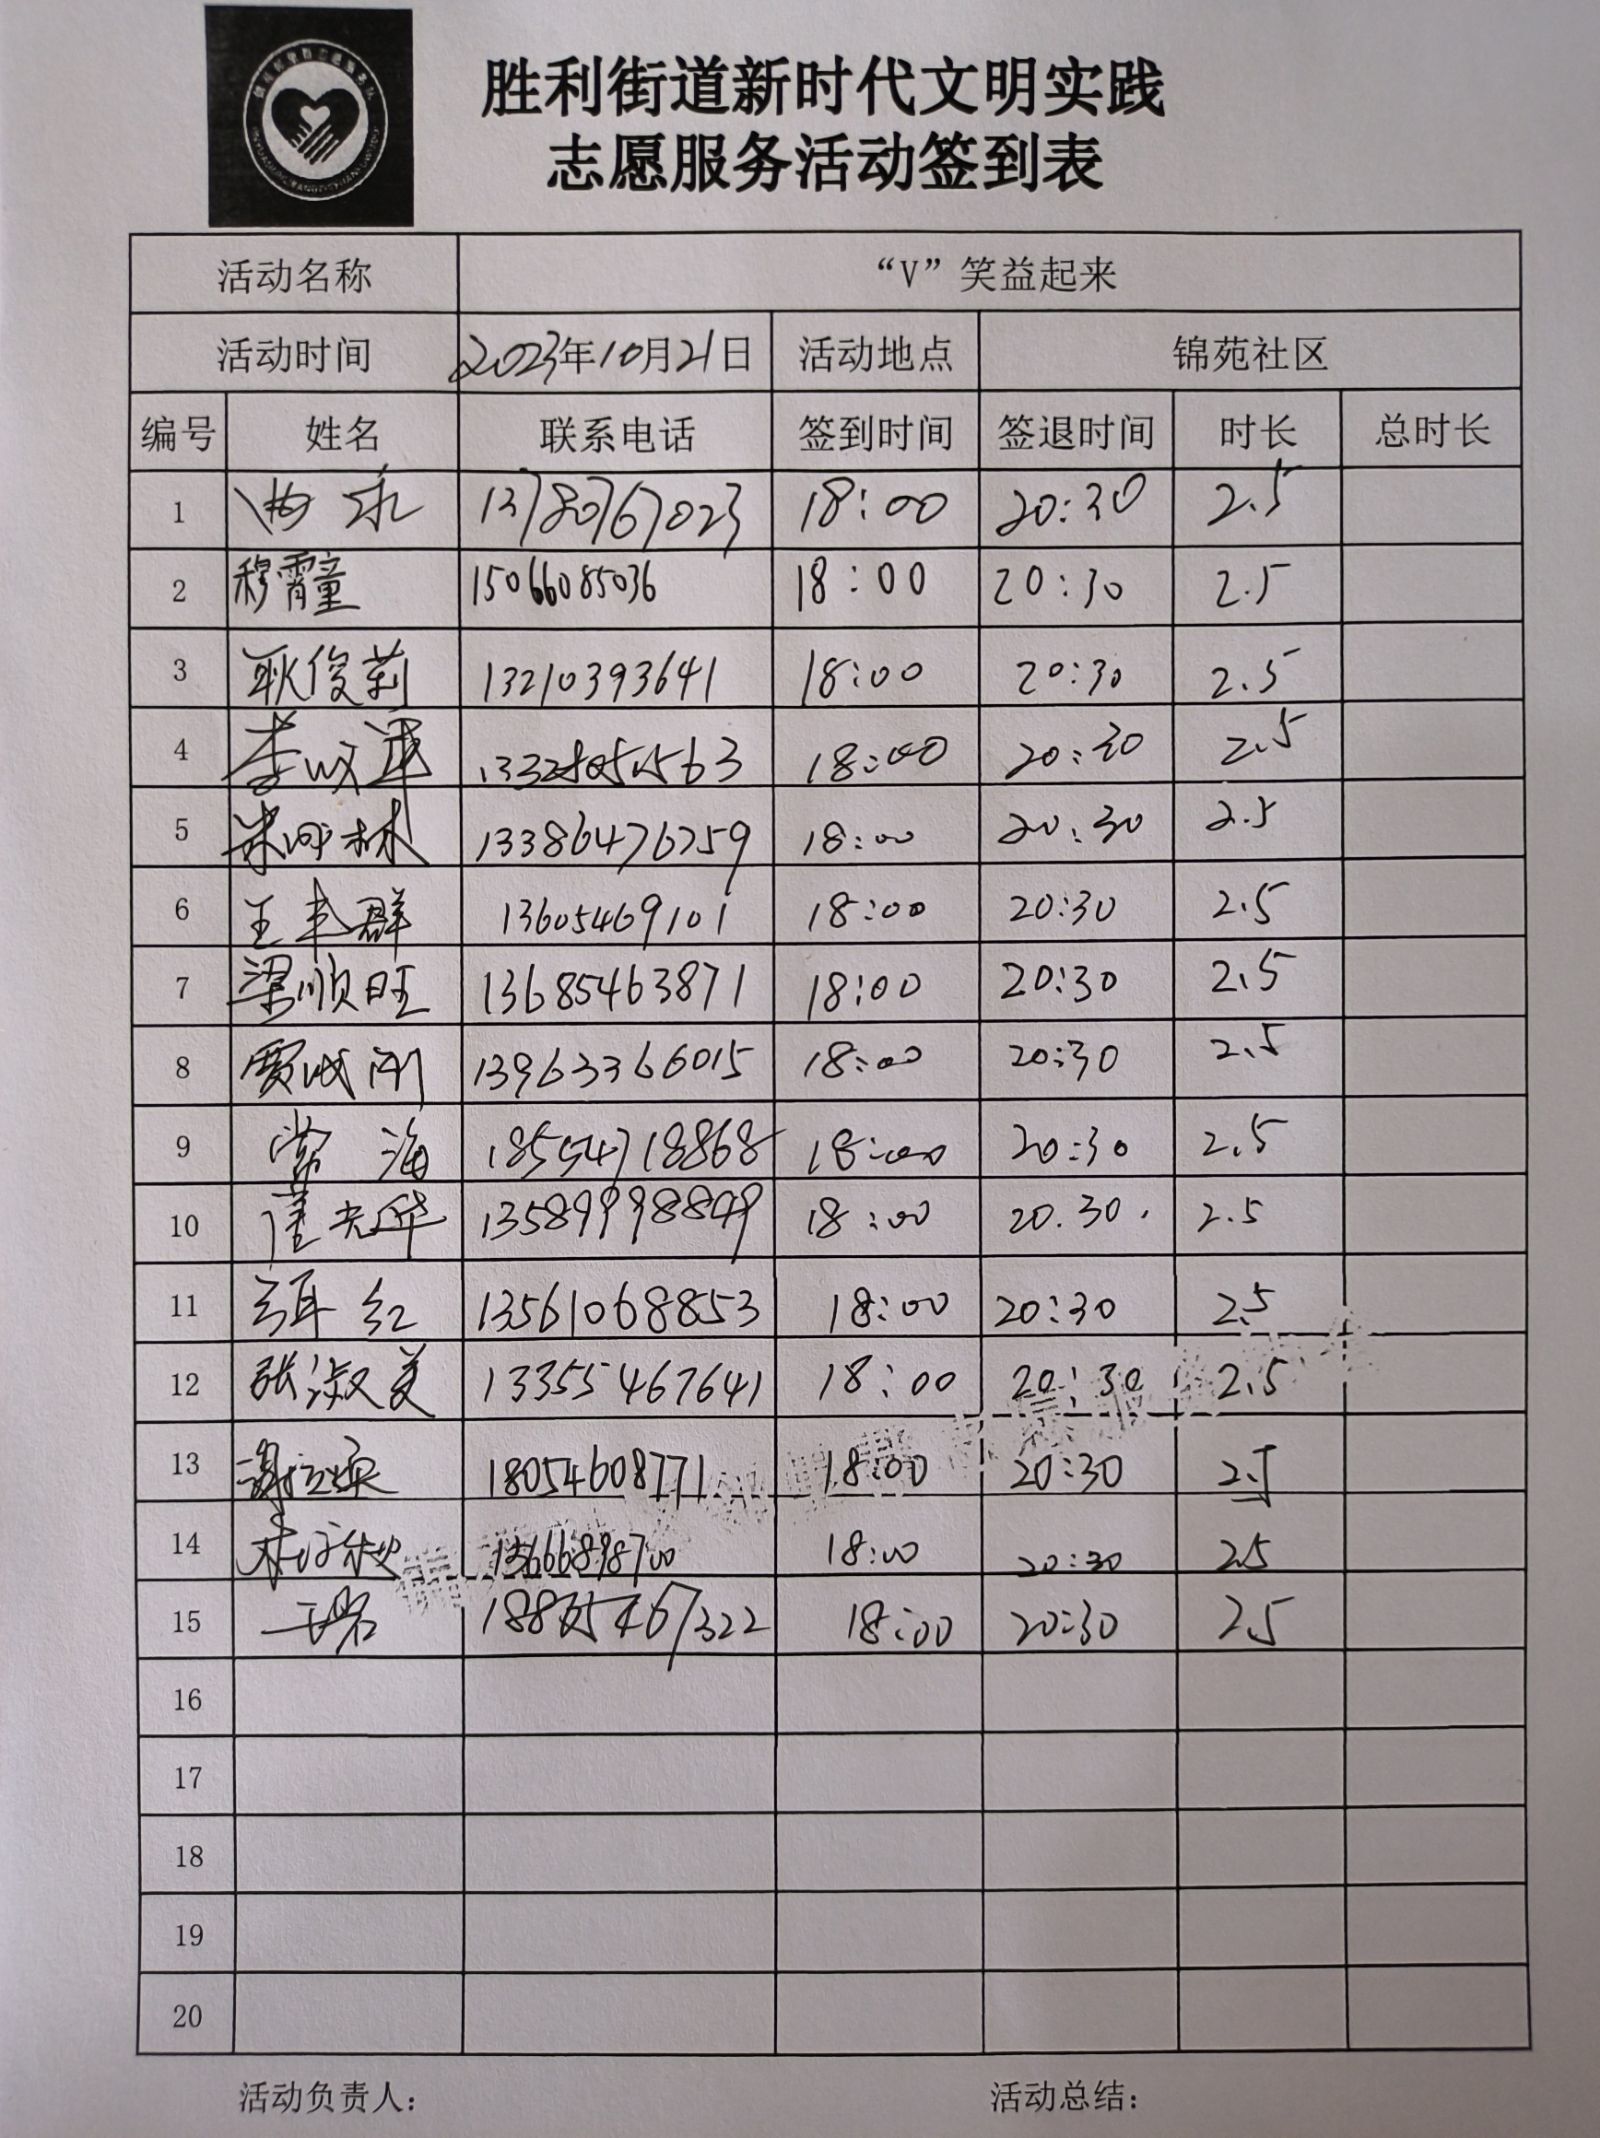 胜利街道新时代文明实践
志愿服务活动签到表
活动名称 “V”笑益起来
活动时间 2023年10月21日 活动地点 锦苑社区
编号 姓名 联系电话 签到时间 签退时间 时长 总时长
1 13780767023 18:00 20:30 2.5
2 穆霄童 15066085036 18:00 20:30 2.5
3 耿俊莉 13210393641 18:00 20:30 2.5
4 18:00 20:30 2.5
5 13386476259 18:00 20:30 2.5
6 王丰群 13605469101 18:00 20:30 2.5
7 梁顺旺 13685463871 18:00 20:30 2.5
8 贾成刚 13963366015 18:00 20:30 2.5
9 常海 18554718868 18:00 20:30 2.5
10 董光华 13589998849 18:00 20.30. 2.5
11 红 13561068853 18:00 20:30 2.5
12 张淑美 13355467641 18:00 20:30 2.5
13 18054608771 18:00 20:30 2.5
14 13666898700 18:00 20:30 2.5
15 18:00 20:30 2.5
16
17
18
19
20
活动负责人: 活动总结: